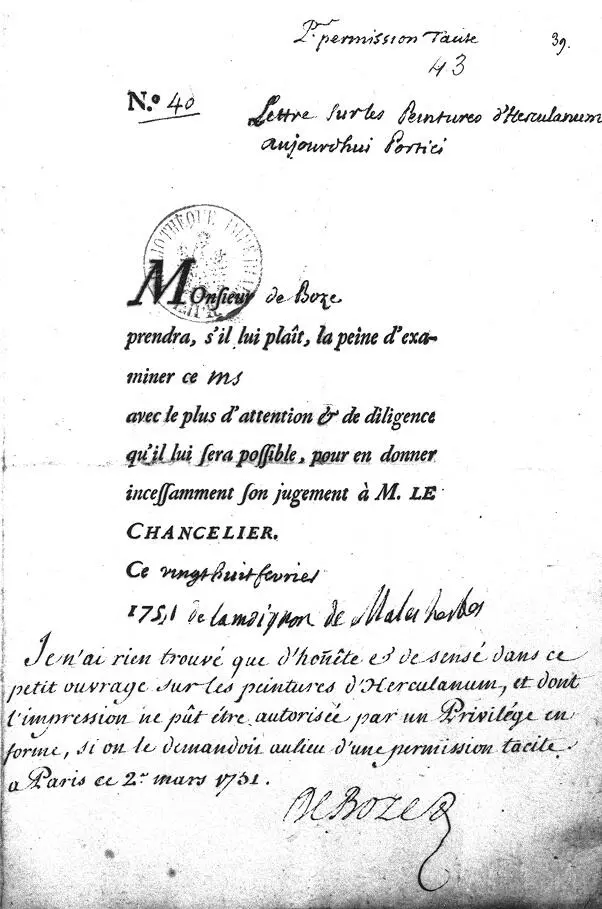 Pr. permission Tacite 39.
43
N.º 40 Lettre sur les Peintures d'Herculanum
aujourd'hui Portici
BIBLIOTHÈQUE IMPÉRIALE
Monsieur de Boze
prendra, s'il lui plaît, la peine d'exa-
miner ce ms
avec le plus d'attention & de diligence
qu'il lui sera possible, pour en donner
incessamment son jugement à M. LE
CHANCELIER.
Ce vingt huit fevrier
1751 de lamoignon de Malesherbes
Je n'ai rien trouvé que d'hoñête et de sensé dans ce
petit ouvrage sur les peintures d'Herculanum, et dont
l'impression ne pût être autorisée par un Privilége en
forme, si on le demandoit aulieu d'une permission tacite.
a Paris ce 2.e mars 1751.
De Boze